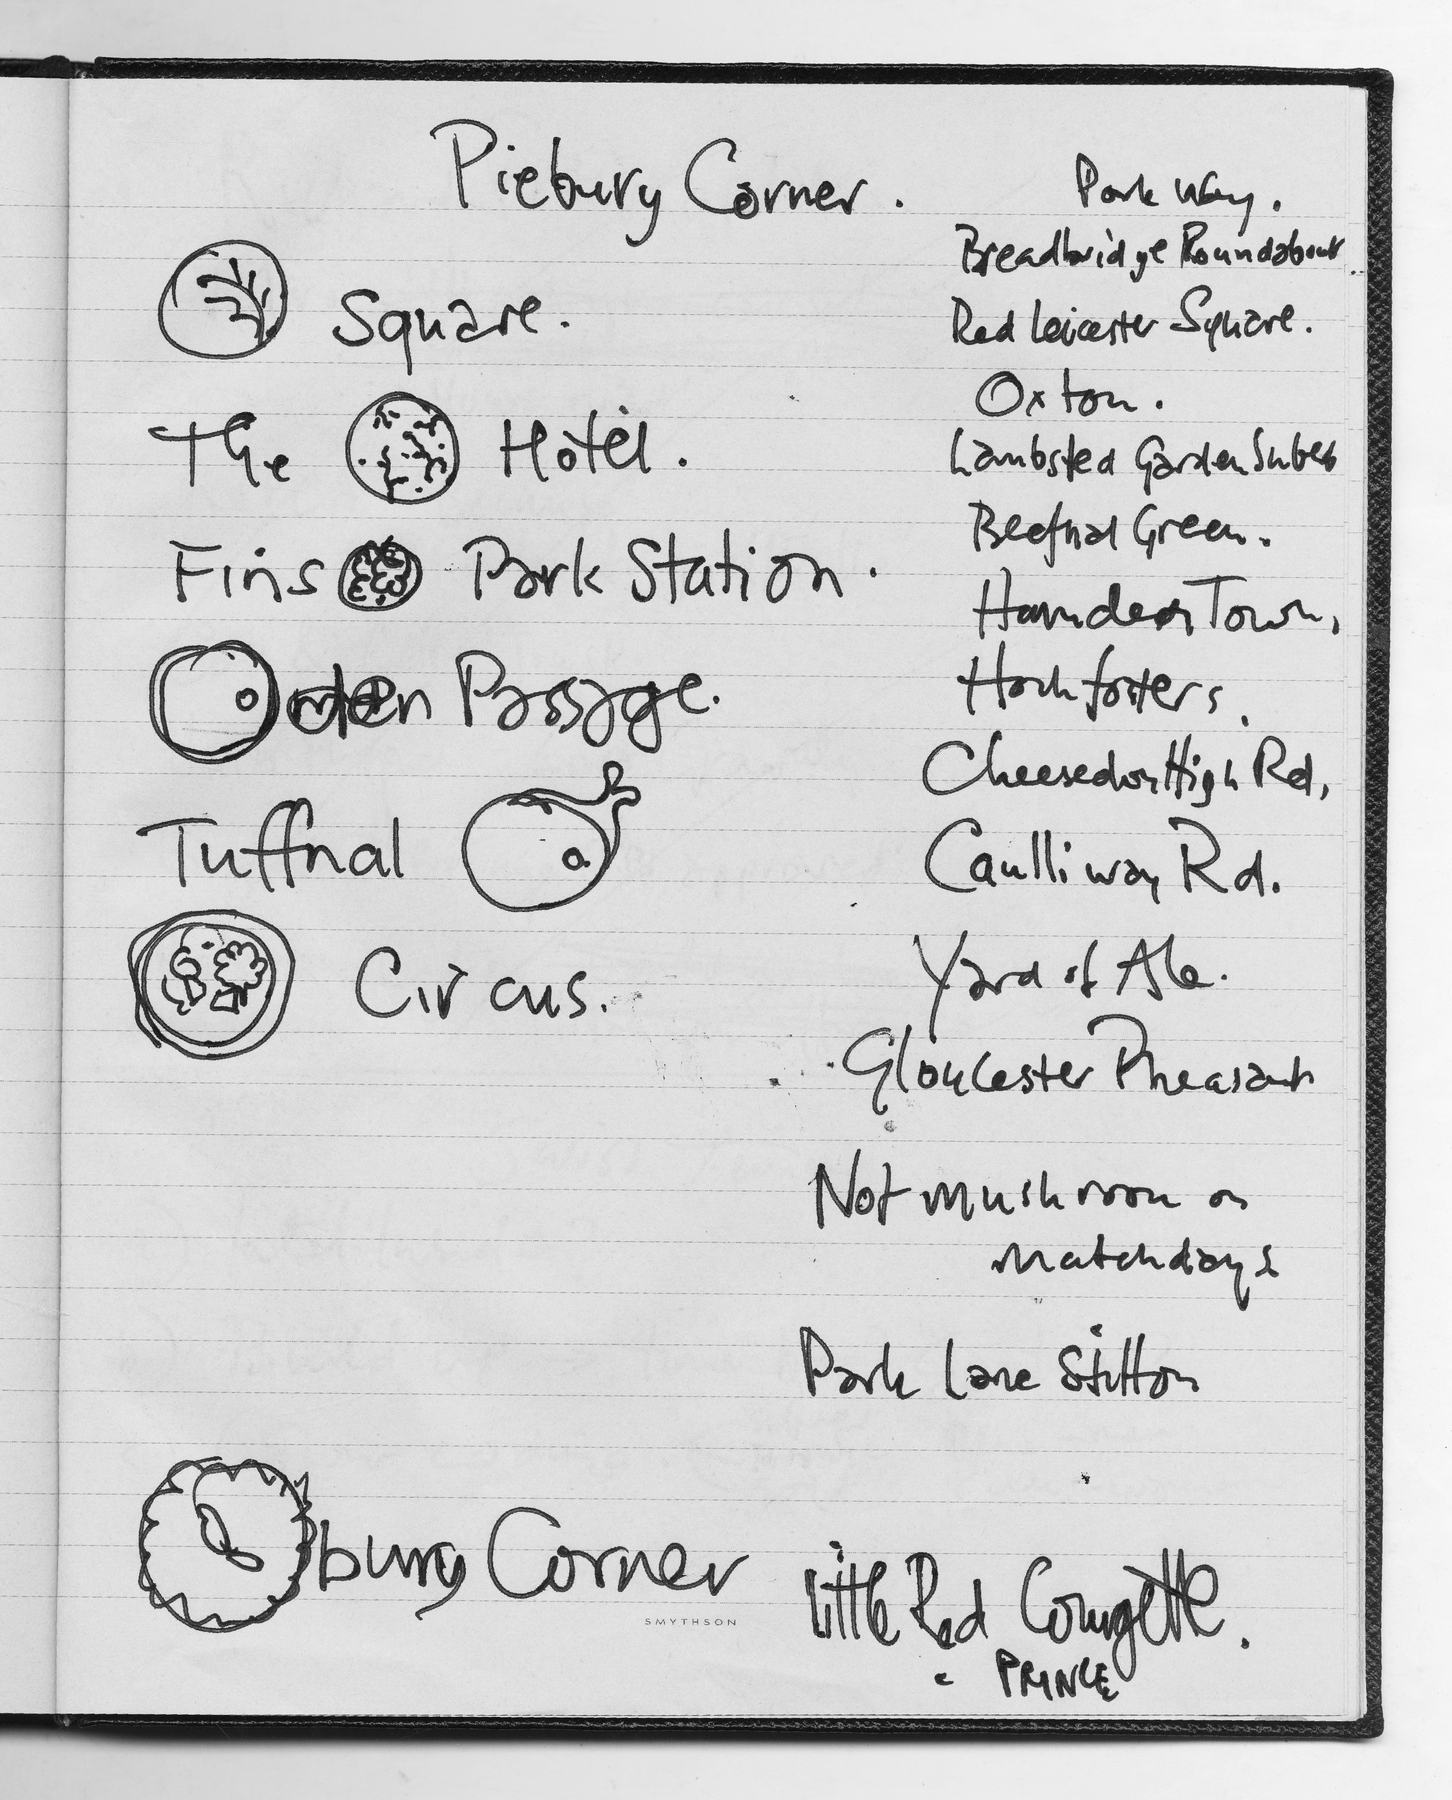 Piebury Corner.
Square.
The Hotel.
Fins Park Station.
Passage.
Tuffnal
Circus.
bury Corner
SMYTHSON
Pork Way.
Breadbridge Roundabout
Red Leicester Square.
Oxton.
Lambsted Garden Suburb
Beefnal Green.
Hamden Town,
Hockfosters,
Cheesedon High Rd,
Caulliway Rd.
Yard of Ale.
Gloucester Pheasant
Not mushroom on
matchdays
Park Lane Stilton
Little Red Courgette.
PRINCE